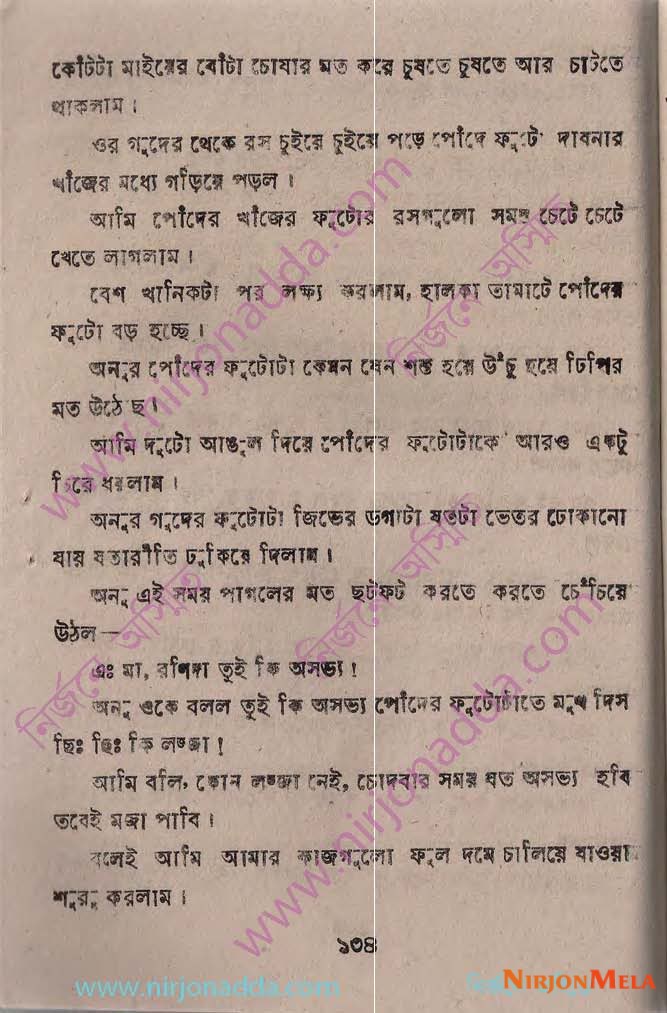 কোঁটটা মাইয়ের বোঁটা চোষার মত করে চুষতে চুষতে আর চাটতে
থাকলাম।
ওর গুদের থেকে রস চুইয়ে চুইয়ে পড়ে পোঁদে ফুটো দাবনার
খাঁজের মধ্যে গড়িয়ে পড়ল।
আমি পোঁদের খাঁজের ফুটোর রসগুলো সমস্ত চেটে চেটে
খেতে লাগলাম।
বেশ খানিকটা পর লক্ষ্য করলাম, হালকা তামাটে পোঁদের
ফুটো বড় হচ্ছে।
অনুর পোঁদের ফুটোটা কেমন যেন শক্ত হয়ে উঁচু হয়ে ঢিপির
মত উঠে ছ।
আমি দুটো আঙুল দিয়ে পোঁদের ফুটোটাকে আরও একটু
চিরে ধরলাম।
অনুর গুদের ফুটোটা জিভের ডগাটা যতটা ভেতর ঢোকানো
যায় যতারীতি ঢুকিয়ে দিলাম।
অনু এই সময় পাগলের মত ছটফট করতে করতে চেঁচিয়ে
উঠল—
এঃ মা, তুই কি অসভ্য!
অনু ওকে বলল তুই কি অসভ্য পোঁদের ফুটোটাতে মুখ দিস
ছিঃ ছিঃ কি লজ্জা!
আমি বলি, কোন লজ্জা নেই, চোদবার সময় যত অসভ্য হবি
তবেই মজা পাবি।
বলেই আমি আমার কাজগুলো ফুল দমে চালিয়ে যাওয়া
শুরু করলাম।
১৩৪
www.nirjonadda.com
নির্জনে অস্মিত
www.nirjonadda.com
নির্জনে অস্মিত
নির্জনে অস্মিত
নির্জনে অস্মিত
www.nirjonadda.com
NIRJONMELA